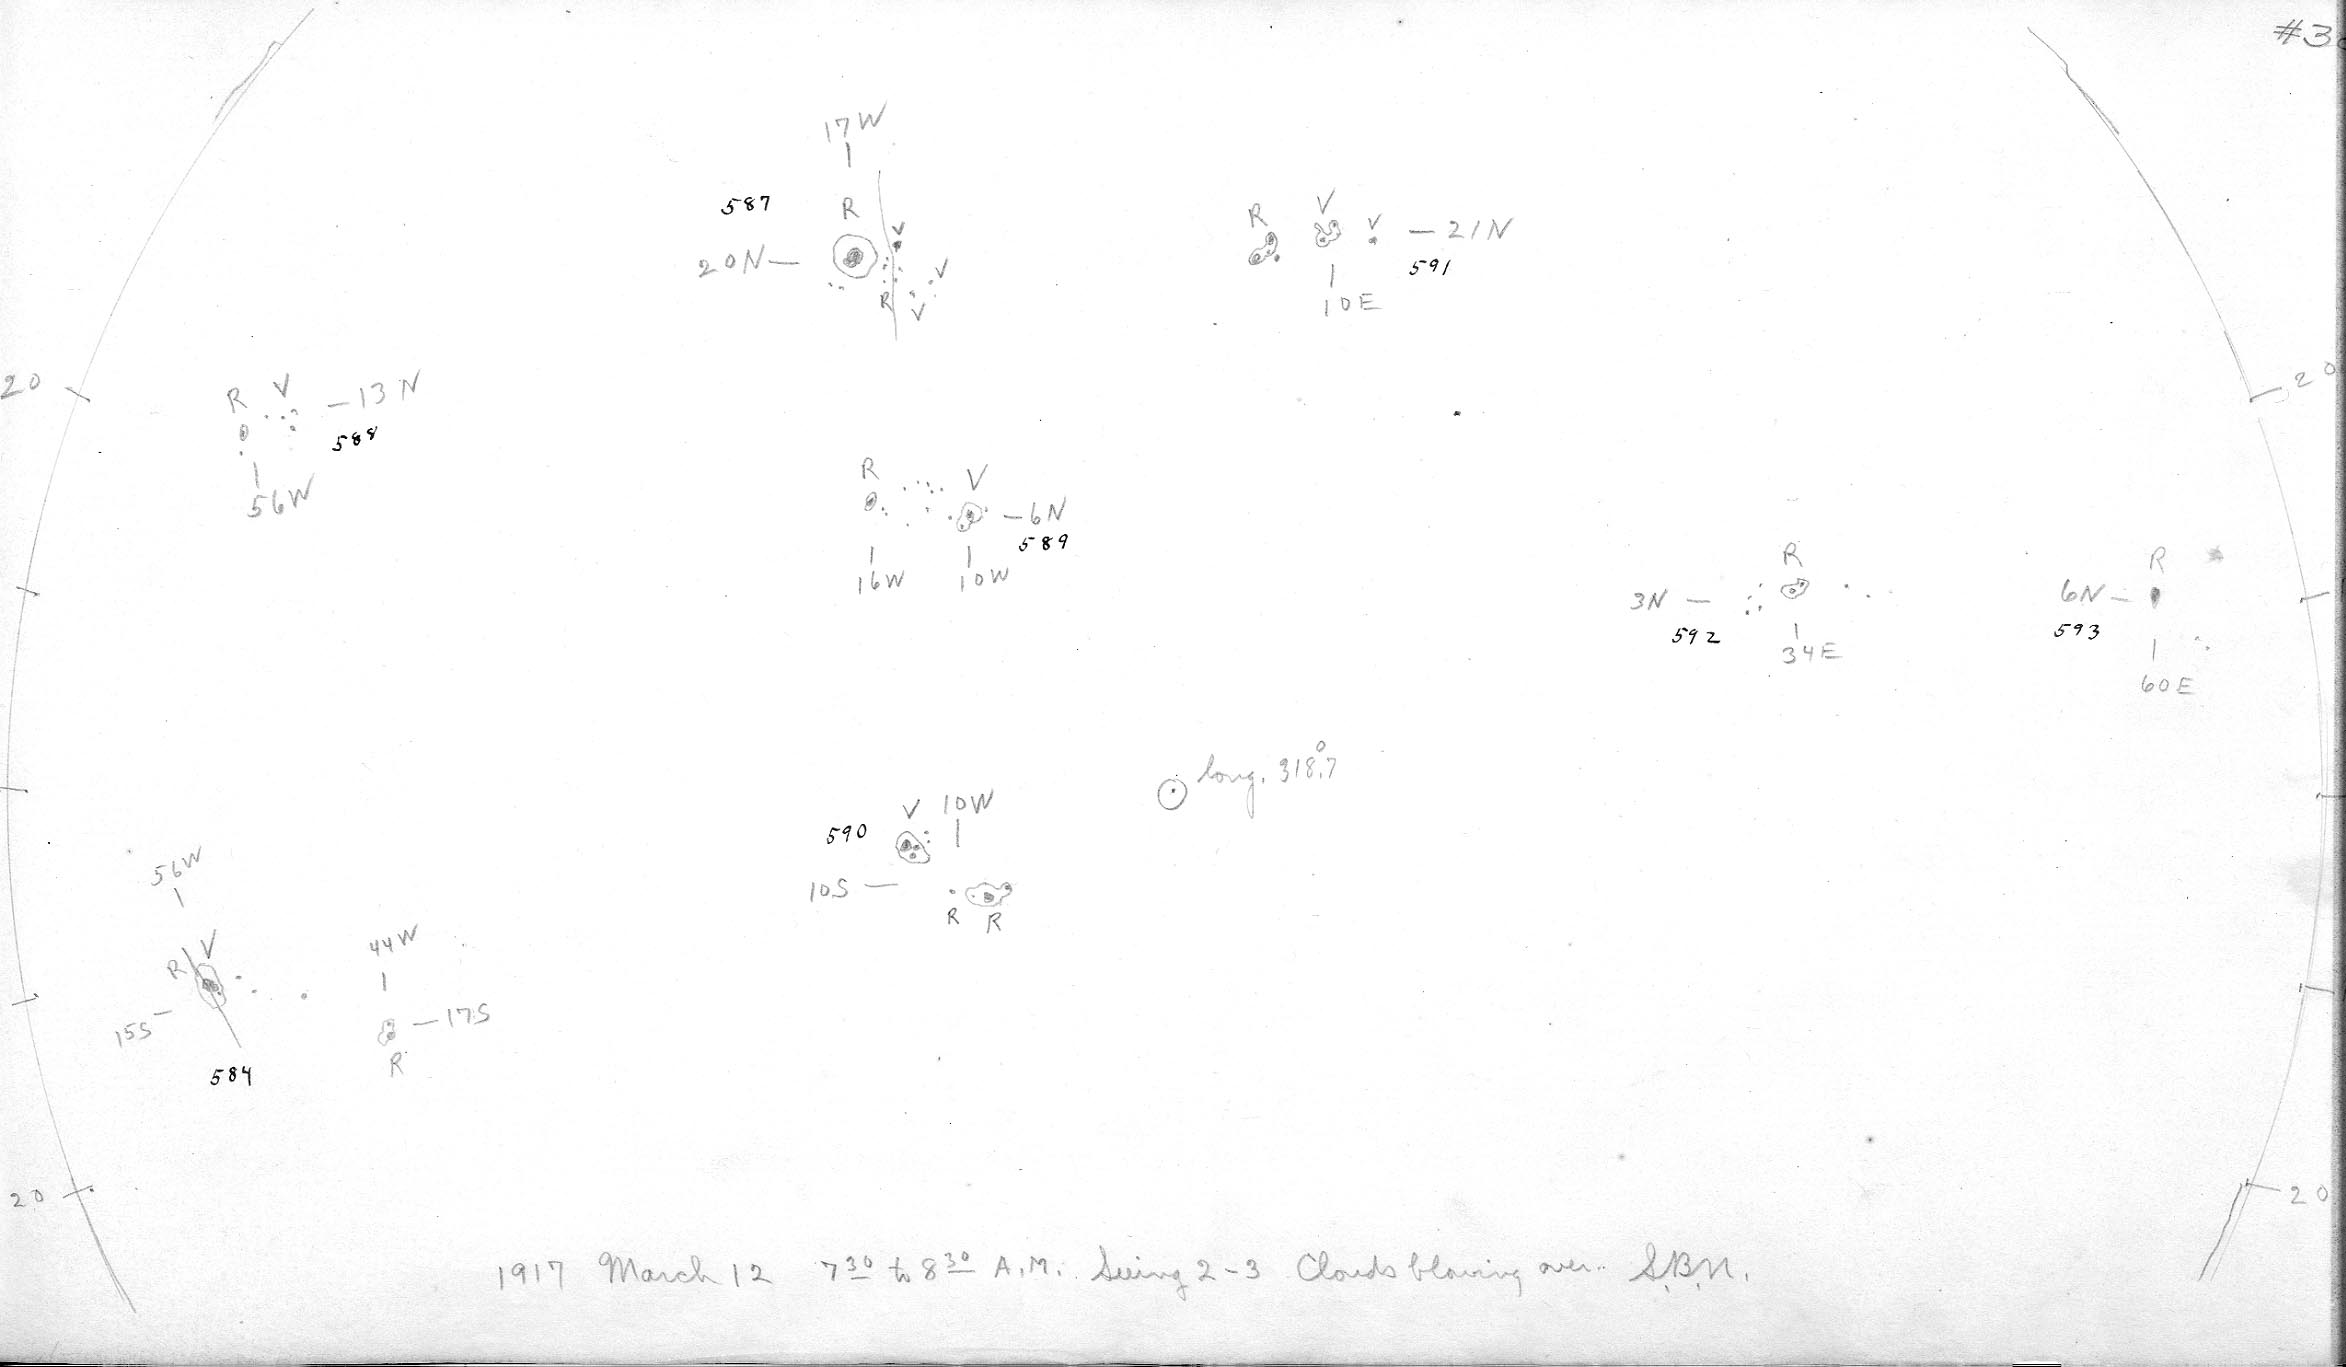 #3
17W
587
R
20N—
V
R
V
V
R
V
V
—21N
591
10E
20
20
R
V
—13N
588
56W
R
V
—6N
589
16W
10W
R
3N —
592
34E
R
6N —
593
60E
long. 318°.7
V
10W
590
10S —
R
R
56W
R
V
15S —
584
44W
—17S
R
20
20
1917 March 12 7 30 to 8 30 A.M. Seeing 2-3 Clouds blowing over. S.B.N.